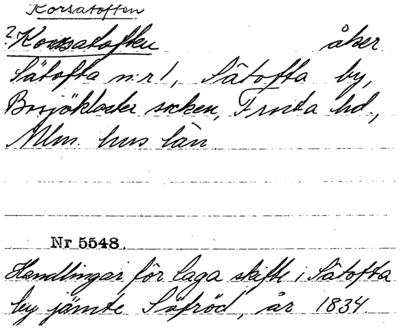 Korsatoften
2 Korsatoften åker
Sätofta nr 1, Sätofta by,
Bosjökloster socken, Frosta hd.,
Mlm. hus län
Nr 5548.
Handlingar för laga skifte i Sätofta
by jämte Söfröd, år 1834.